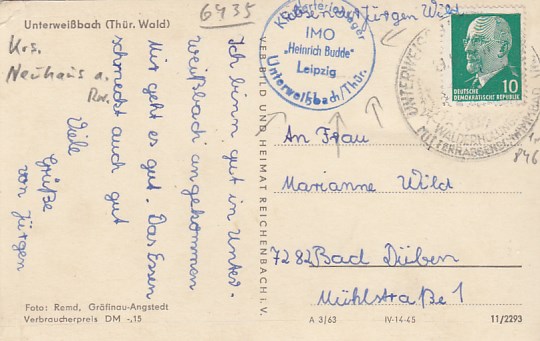 Unterweißbach (Thür. Wald)
6435
Krs.
Neuhaus a.
Rw.
Ich binn gut in Unter-
weißbach angekommen
Mir geht es gut. Das Essen
schmeckt auch gut
Viele
Grüße
von Jürgen
Foto: Remd, Gräfinau-Angstedt
Verbraucherpreis DM -,15
VERBILD UND HEIMAT REICHENBACH i. V.
Jürgen Wild
Kinderferienlager
IMO
„Heinrich Budde"
Leipzig
Unterweißbach/Thür.
10
DEUTSCHE
DEMOKRATISCHE REPUBLIK
UNTERWEISSB
An Frau
Marianne Wild
7282 Bad Düben
Mühlstraße 1
A 3/63
IV-14-45
11/2293